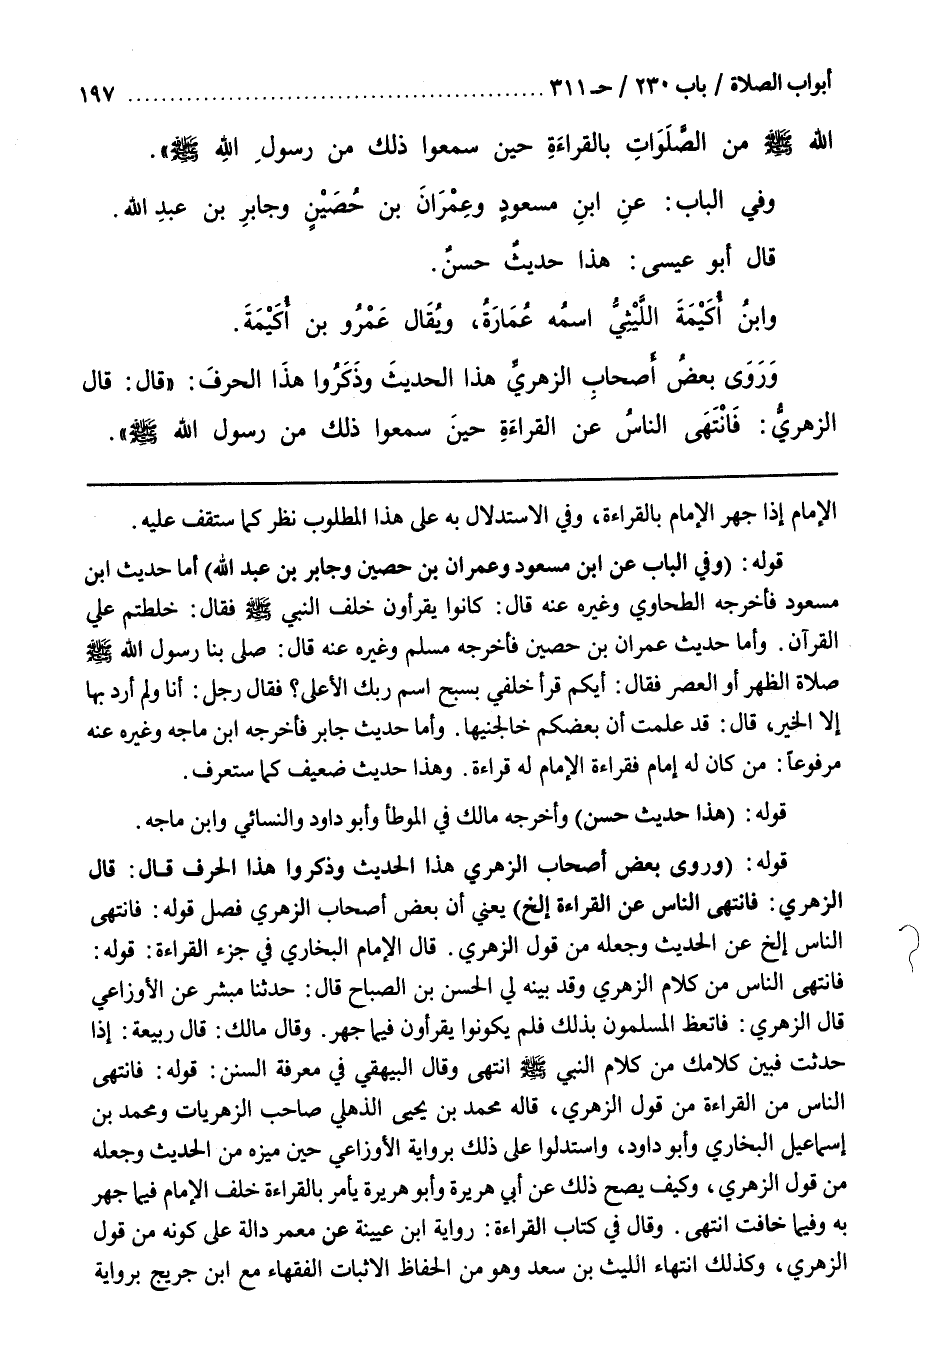 أبواب الصلاة / باب ٢٣٠ / حـ ٣١١ ................................................ ١٩٧
الله ﷺ من الصَّلَوَاتِ بالقراءَةِ حين سمعوا ذلك من رسولِ اللهِ ﷺ».
وفي الباب: عنِ ابنِ مسعودٍ وعِمْرَانَ بن حُصَيْنٍ وجابرِ بن عبدِ الله.
قال أبو عيسى: هذا حديثٌ حسنٌ.
وابنُ أُكَيْمَةَ اللَّيْثِيُّ اسمُه عُمَارَةُ، ويُقَال عَمْرُو بن أُكَيْمَةَ.
وَرَوَى بعضُ أَصحابِ الزهريِّ هذا الحديثَ وذَكَرُوا هذَا الحرفَ: «قال: قال
الزهريُّ: فَانْتَهَى الناسُ عن القراءَةِ حينَ سمعوا ذلك من رسول الله ﷺ».
الإمام إذا جهر الإمام بالقراءة، وفي الاستدلال به على هذا المطلوب نظر كما ستقف عليه.
قوله: (وفي الباب عن ابن مسعود وعمران بن حصين وجابر بن عبد الله) أما حديث ابن
مسعود فأخرجه الطحاوي وغيره عنه قال: كانوا يقرأون خلف النبي ﷺ فقال: خلطتم علي
القرآن. وأما حديث عمران بن حصين فأخرجه مسلم وغيره عنه قال: صلى بنا رسول الله ﷺ
صلاة الظهر أو العصر فقال: أيكم قرأ خلفي بسبح اسم ربك الأعلى؟ فقال رجل: أنا ولم أرد بها
إلا الخير، قال: قد علمت أن بعضكم خالجنيها. وأما حديث جابر فأخرجه ابن ماجه وغيره عنه
مرفوعاً: من كان له إمام فقراءة الإمام له قراءة. وهذا حديث ضعيف كما ستعرف.
قوله: (هذا حديث حسن) وأخرجه مالك في الموطأ وأبو داود والنسائي وابن ماجه.
قوله: (وروى بعض أصحاب الزهري هذا الحديث وذكروا هذا الحرف قال: قال
الزهري: فانتهى الناس عن القراءة إلخ) يعني أن بعض أصحاب الزهري فصل قوله: فانتهى
الناس إلخ عن الحديث وجعله من قول الزهري. قال الإمام البخاري في جزء القراءة: قوله:
فانتهى الناس من كلام الزهري وقد بينه لي الحسن بن الصباح قال: حدثنا مبشر عن الأوزاعي
قال الزهري: فاتعظ المسلمون بذلك فلم يكونوا يقرأون فيما جهر. وقال مالك: قال ربيعة: إذا
حدثت فبين كلامك من كلام النبي ﷺ انتهى وقال البيهقي في معرفة السنن: قوله: فانتهى
الناس من القراءة من قول الزهري، قاله محمد بن يحيى الذهلي صاحب الزهريات ومحمد بن
إسماعيل البخاري وأبو داود، واستدلوا على ذلك برواية الأوزاعي حين ميزه من الحديث وجعله
من قول الزهري، وكيف يصح ذلك عن أبي هريرة وأبو هريرة يأمر بالقراءة خلف الإمام فيما جهر
به وفيما خافت انتهى. وقال في كتاب القراءة: رواية ابن عيينة عن معمر دالة على كونه من قول
الزهري، وكذلك انتهاء الليث بن سعد وهو من الحفاظ الاثبات الفقهاء مع ابن جريج برواية